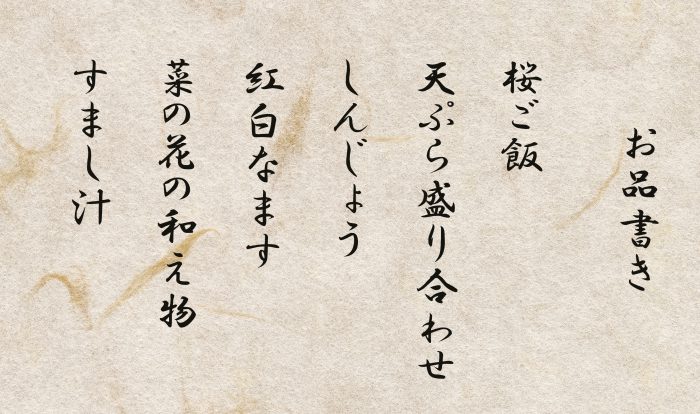 お品書き
桜ご飯
天ぷら盛り合わせ
しんじょう
紅白なます
菜の花の和え物
すまし汁